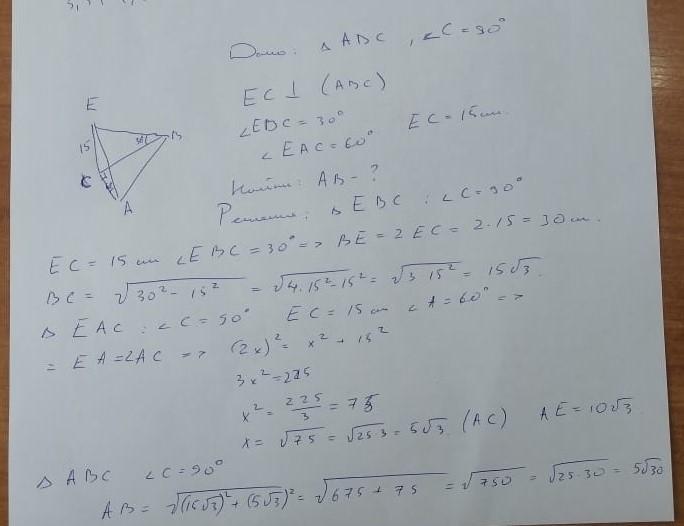 Дано: △ ABC , ∠C = 90°
EC ⊥ (ABC)
∠EBC = 30°
EC = 15 см.
∠ EAC = 60°
Найти: AB - ?
E
15
30°
B
C
A
Решение: △ EBC : ∠C = 90°
EC = 15 см ∠EBC = 30° => BE = 2 EC = 2·15 = 30 см.
BC = √30² - 15² = √4·15² - 15² = √3·15² = 15√3.
△ EAC : ∠C = 90° EC = 15 см ∠A = 60° =>
= EA = 2AC => (2x)² = x² + 15²
3x² = 225
x² = 225/3 = 75
x = √75 = √25·3 = 5√3. (AC) AE = 10√3.
△ ABC ∠C = 90°
AB = √(15√3)² + (5√3)² = √675 + 75 = √750 = √25·30 = 5√30